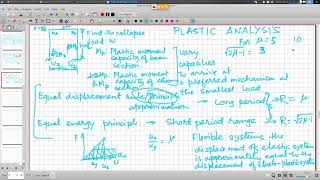 PLASTIC ANALYSIS
Find the collapse
load W
Mp: Plastic moment
capacity of beam
section
Mp: Plastic moment
capacity of
section
Vary
capacities
To arrive at
a preferred mechanism at
the smallest Load
For μ=5 10
√2μ-1 = 3
Equal displacement rule/principle → Long period → R = μ
approximation
Equal energy principle → Short period range → R = √2μ-1
F
uy um u
um/uy = μ
Flexible systems the
displacement of elastic system
is approximately equal to the
displacement of elasto-plastic system